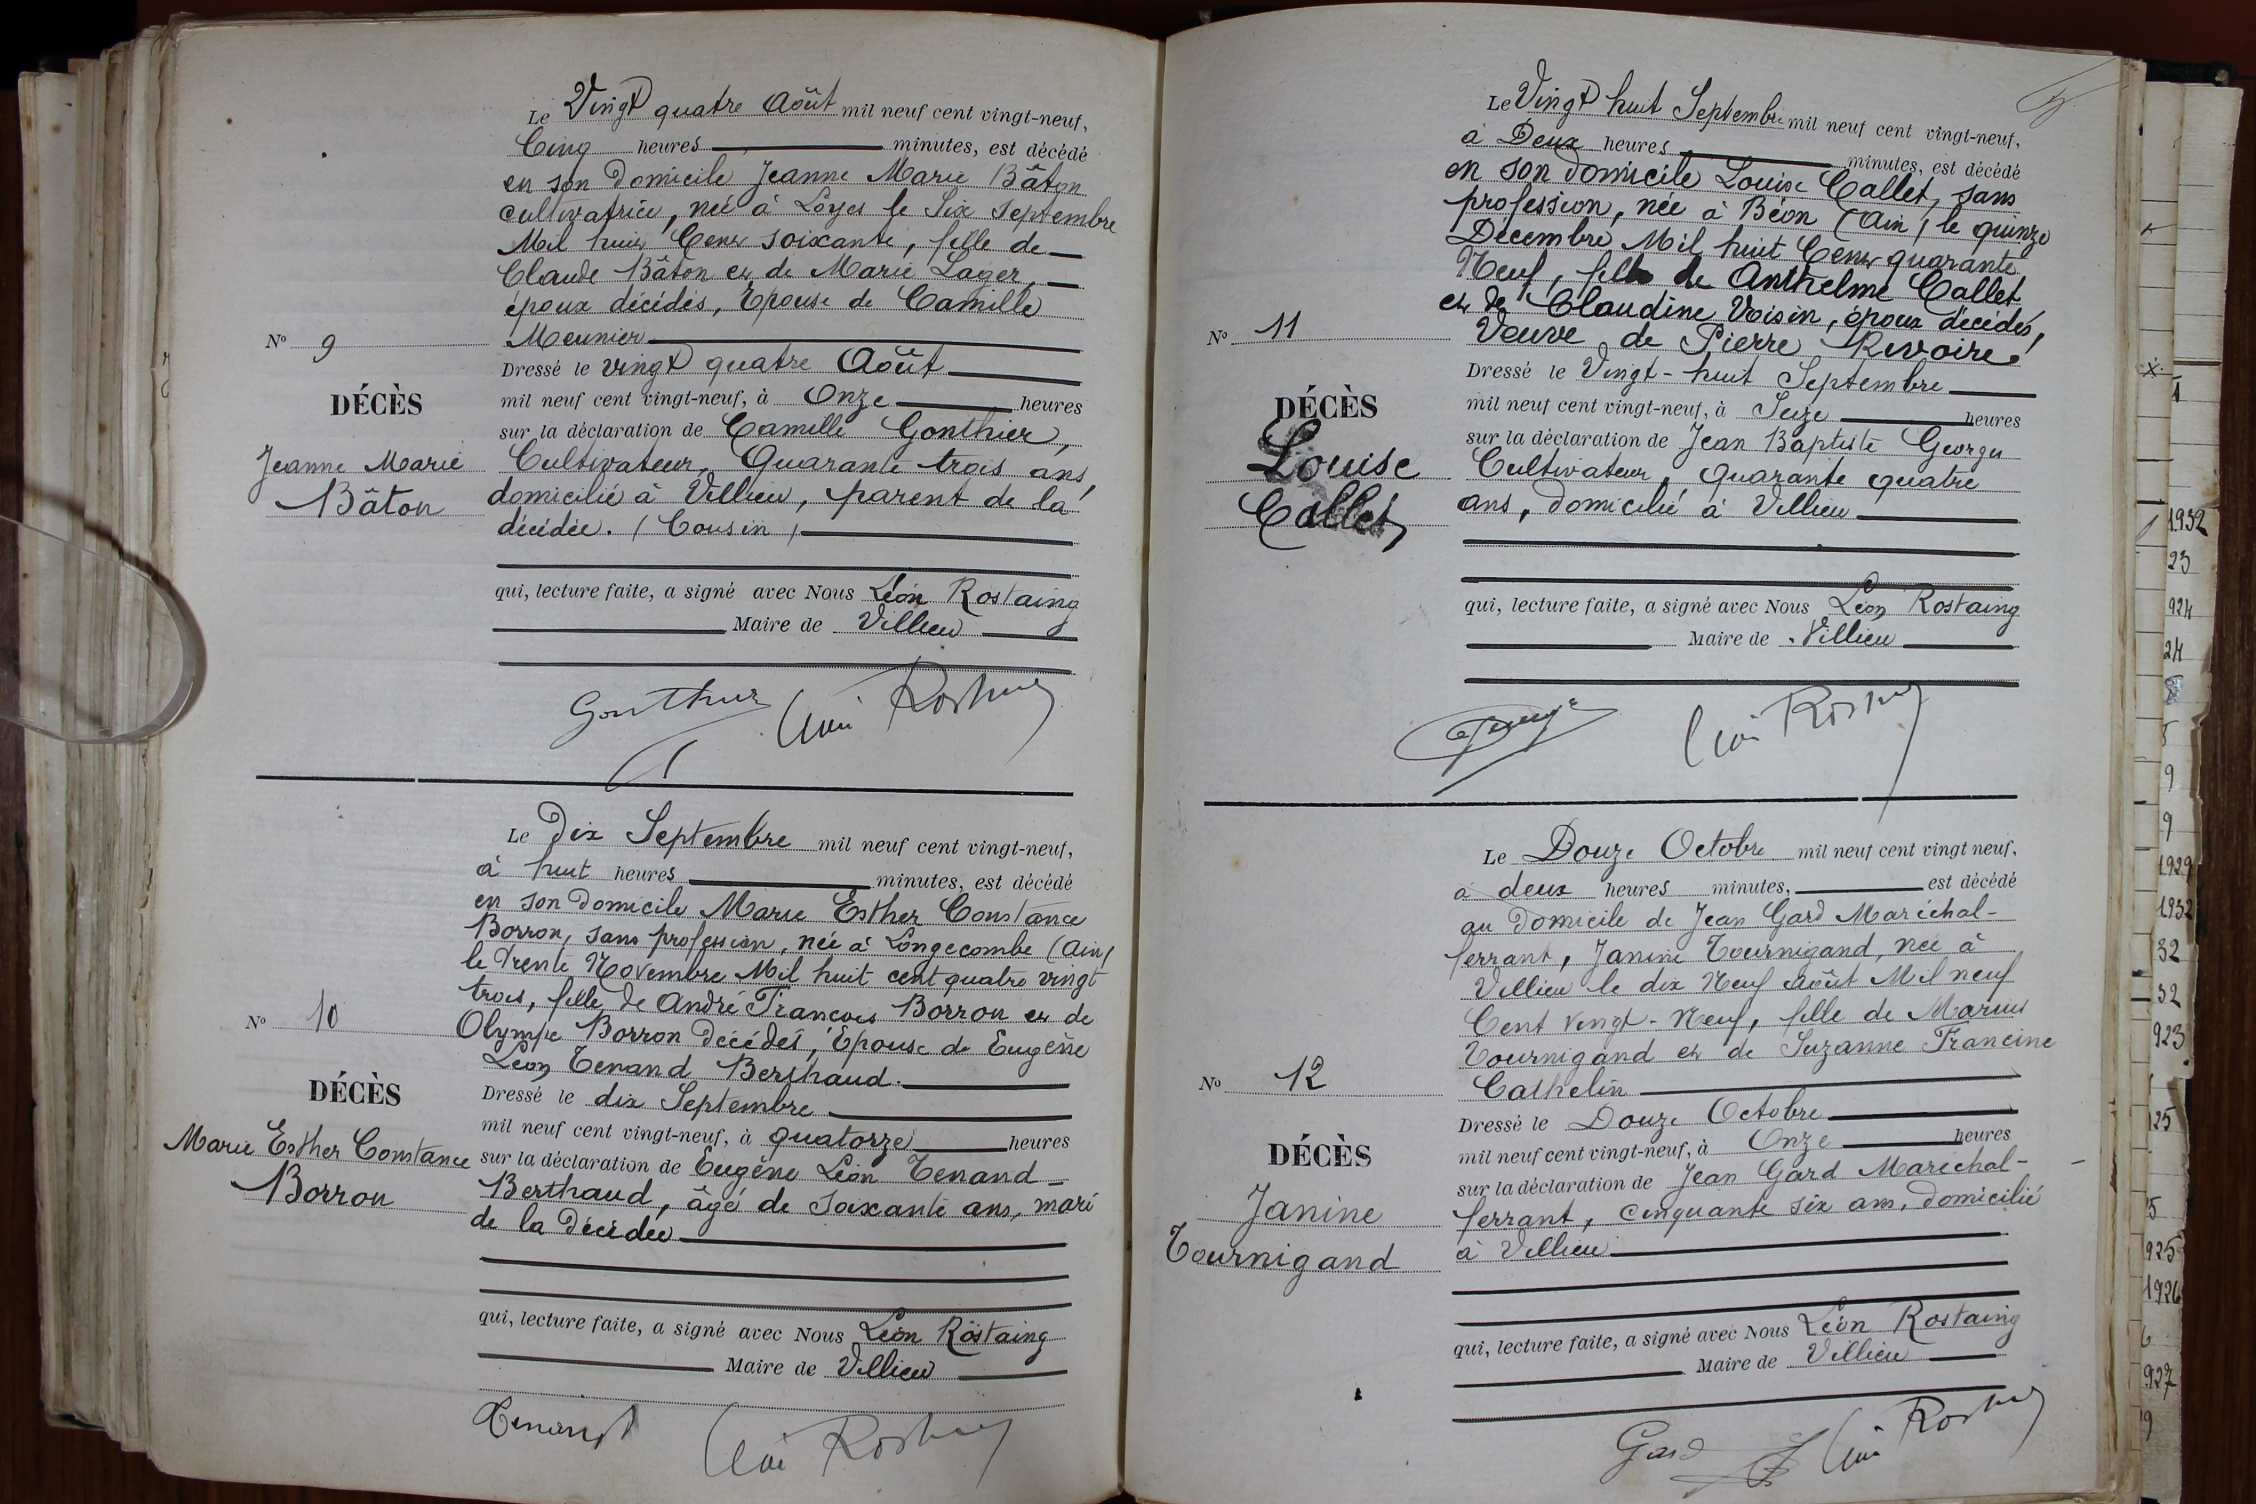 Le Vingt quatre Août mil neuf cent vingt-neuf,
Cinq heures minutes, est décédé
en son domicile Jeanne Marie Bâton
cultivatrice, née à Loyes le Six Septembre
Mil huit Cent soixante, fille de
Claude Bâton et de Marie Lager,
époux décédés, Epouse de Camille
Nº 9 Meunier
Dressé le vingt quatre Août
DÉCÈS mil neuf cent vingt-neuf, à Onze heures
sur la déclaration de Camille Gonthier,
Jeanne Marie Cultivateur, Quarante trois ans,
Bâton domicilié à Villieu, parent de la
décédée. (Cousin)
qui, lecture faite, a signé avec Nous Léon Rostaing
Maire de Villieu
Gonthier Léon Rostaing
Le Dix Septembre mil neuf cent vingt-neuf,
à huit heures minutes, est décédé
en son domicile Marie Esther Constance
Borron, sans profession, née à Longecombe (Ain)
le Trente Novembre Mil huit cent quatre vingt
trois, fille de André François Borron et de
Nº 10 Olympe Borron décédés, Epouse de Eugène
Léon Tenand Berthaud.
DÉCÈS Dressé le dix Septembre
mil neuf cent vingt-neuf, à quatorze heures
Marie Esther Constance sur la déclaration de Eugène Léon Tenand
Borron Berthaud, âgé de soixante ans, mari
de la décédée
qui, lecture faite, a signé avec Nous Léon Rostaing
Maire de Villieu
Tenand Léon Rostaing
Le Vingt huit Septembre mil neuf cent vingt-neuf,
à Deux heures minutes, est décédé
en son domicile Louise Callet, sans
profession, née à Béon (Ain) le quinze
Décembre Mil huit Cent quarante
Neuf, fille de Anthelme Callet
et de Claudine Voisin, époux décédés,
Nº 11 Veuve de Pierre Rivoire
Dressé le Vingt-huit Septembre
DÉCÈS mil neuf cent vingt-neuf, à Seize heures
sur la déclaration de Jean Baptiste Georges
Louise Cultivateur, quarante quatre
Callet ans, domicilié à Villieu
qui, lecture faite, a signé avec Nous Léon Rostaing
Maire de Villieu
Léon Rostaing
Le Douze Octobre mil neuf cent vingt neuf,
à deux heures minutes, est décédé
au domicile de Jean Gard Maréchal-
ferrant, Janine Tournigand, née à
Villieu le dix Neuf Août Mil neuf
Cent vingt-Neuf, fille de Marius
Tournigand et de Suzanne Francine
Nº 12 Cathelin
Dressé le Douze Octobre
DÉCÈS mil neuf cent vingt-neuf, à Onze heures
sur la déclaration de Jean Gard Maréchal-
Janine ferrant, cinquante six ans, domicilié
Tournigand à Villieu
qui, lecture faite, a signé avec Nous Léon Rostaing
Maire de Villieu
Gard Léon Rostaing
1932
23
924
24
9
9
1929
1932
32
32
923
125
925
1926
6
927
9